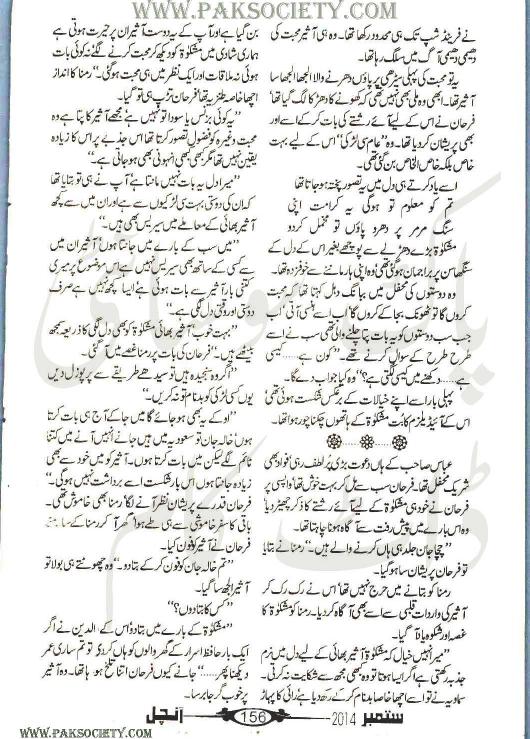 WWW.PAKSOCIETY.COM
نے فرینڈ شپ تک ہی محدود رکھا تھا۔ وہ ہی آشیر محبت کی
دھیمی دھیمی آگ میں سلگ رہا تھا۔
یہ تو محبت کی پہلی سیڑھی پر پاؤں دھرنے والا الجھا الجھا سا
آشیر تھا۔ ابھی وہ ملی بھی نہیں تھی کہ کھونے کا دھڑکا لگ گیا تھا
فرحان نے اس کے لیے آئے رشتے کی بات کر کے اسے اور
بھی پریشان کر دیا تھا۔ وہ "عام سی لڑکی" اس کے لیے بہت
خاص بلکہ خاص الخاص بن گئی تھی۔
اسے یاد کرتے ہی دل میں یہ تصور پختہ ہو جاتا تھا
تم کو معلوم تو ہو گی یہ کرامت اپنی
سنگ مرمر پر دھرو پاؤں تو مخمل کر دو
مشکوٰۃ بڑے دھڑلے سے پوچھے بغیر اس کے دل کے
سنگھاسن پر براجمان ہو گئی تھی وہ اپنی ہار ماننے سے خوفزدہ تھا۔
وہ دوستوں کی محفل میں ببانگ دہل کہتا تھا کہ محبت
کروں گا تو ٹھونک بجا کے کروں گا' اب اسے ہنسی آئی' اب
جب سب دوستوں کو یہ بات پتا چلنے والی تھی سب نے اسے
طرح طرح کے سوال کرنے تھے۔ "کون ہے......کیسی
ہے......دکھنے میں کیسی لگتی ہے؟" وہ کیا جواب دے گا۔
پہلی بار اسے اپنے خیالات کے برعکس شکست ہوئی تھی'
اس کے آئیڈیلزم کا بت مشکوٰۃ کے ہاتھوں چکنا چور ہوا تھا۔
عباس صاحب کے ہاں دعوت بڑی پر لطف رہی' نواد بھی
شریک محفل تھا۔ فرحان سب سے مل کر بہت خوش تھا' واپسی پر
فرحان نے خود ہی مشکوٰۃ کے لیے آئے رشتے کا ذکر چھیڑ دیا'
وہ اس بارے میں پیش رفت سے آگاہ ہونا چاہتا تھا۔
"چچا جان جلد ہی ہاں کرنے والے ہیں۔" رمنا نے بتایا
تو فرحان پریشان سا ہو گیا۔
رمنا کو بتانے میں حرج نہیں تھا' اس نے رک رک کر
آشیر کی واردات قلبی سے اسے بھی آگاہ کر دیا۔ رمنا کو مشکوٰۃ کا
غصہ اور شکوہ یاد آ گیا۔
"میرا نہیں خیال کہ مشکوٰۃ آشیر بھائی کے لیے دل میں نرم
جذبہ رکھتی ہے اگر ایسا ہوتا تو وہ کبھی مجھ سے شکایت نہ کرتی۔
سماویہ نے تو اسے اچھا خاصا بدنام کر کے رکھ دیا ہے' رائی کا پہاڑ
بن گیا ہے اور آپ کے یہ دوست آشیر ان پر حیرت ہوتی ہے
ہماری شادی میں مشکوٰۃ کو دیکھ کر محبت کرنے لگے' نہ کوئی بات
ہوئی نہ ملاقات اور ایک نظر میں ہی محبت ہو گئی۔" رمنا کا انداز
اچھا خاصہ طنزیہ تھا' فرحان تڑپ ہی تو گیا۔
"یہ کوئی بزنس یا سودا تو نہیں ہے' مجھے آشیر کا پتا ہے وہ
محبت وغیرہ کو فضول تصور کرتا تھا' اس جذبے پر اس کا زیادہ
یقین نہیں تھا مگر کبھی کبھی انہونی بھی ہو جاتی ہے۔"
"میرا دل یہ بات نہیں مانتا ہے' آپ نے ہی تو بتایا تھا
کہ ان کی دوستی بہت سی لڑکیوں سے ہے اور ان میں سے کچھ
آشیر بھائی کے معاملے میں سیریس بھی ہیں۔"
"میں سب کے بارے میں جانتا ہوں' آشیر ان میں
سے کسی کے ساتھ بھی سیریس نہیں ہے' اس موضوع پر میری
کتنی بار آشیر سے بات ہوئی ہے' ایسا کچھ نہیں ہے صرف
دوستی اور وقتی دل لگی ہے۔"
"بہت خوب' آشیر بھائی مشکوٰۃ کو بھی دل لگی کا ذریعہ سمجھ
بیٹھے ہیں۔" فرحان کی بات پر رمنا غصے میں آ گئی۔
"اگر وہ سنجیدہ ہیں تو سیدھے طریقے سے پرپوزل دیں
یوں کسی لڑکی کو بدنام تو نہ کریں۔"
"اوکے یہ بھی ہو جائے گا میں جا کے آج ہی بات کرتا
ہوں' خالہ جان تو سعودیہ میں ہیں جانے انہیں آنے میں کتنا
ٹائم لگے لیکن میں بات کرتا ہوں۔ آشیر کو میں خود سے بھی
زیادہ جانتا ہوں اس بار شکست اسے برداشت نہیں ہو گی۔"
فرحان قدرے پریشان نظر آنے لگا' رمنا بھی خاموش تھی۔
باقی کا سفر خاموشی سے ہی طے ہوا' گھر آ کر رمنا کے سامنے
فرحان نے آشیر کو فون کیا۔
"تم خالہ جان کو فون کر کے بتا دو۔" وہ چھوٹتے ہی بولا تو
آشیر الجھ سا گیا۔
"کس کا بتا دوں؟"
"مشکوٰۃ کے بارے میں بتا دو' اس کے والدین نے اگر
ایک بار حافظ اسرار کے گھر والوں کو ہاں کر دی تو تم ساری عمر
دیکھنا پھر......" جانے کیوں فرحان اتنا تلخ ہو رہا تھا۔ وہ آشیر
پر خوب گرجا برسا۔
ستمبر 2014 156 آنچل
WWW.PAKSOCIETY.COM